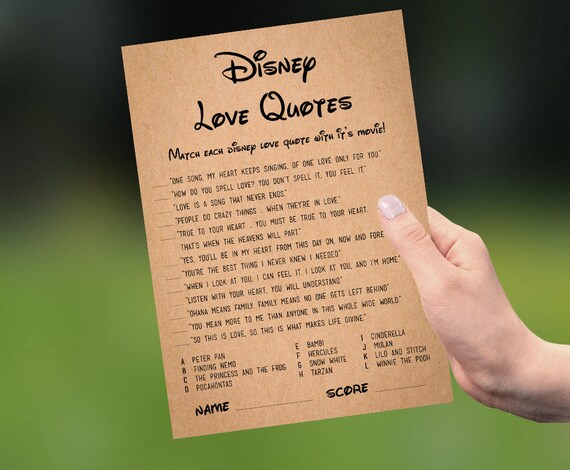 Disney
Love Quotes
Match each Disney love quote with it's movie!
"ONE SONG, MY HEART KEEPS SINGING, OF ONE LOVE ONLY FOR YOU"
"HOW DO YOU SPELL LOVE? YOU DON'T SPELL IT, YOU FEEL IT."
"LOVE IS A SONG THAT NEVER ENDS."
"PEOPLE DO CRAZY THINGS .. WHEN THEY'RE IN LOVE."
"TRUE TO YOUR HEART .. YOU MUST BE TRUE TO YOUR HEART.
THAT'S WHEN THE HEAVENS WILL PART."
"YES, YOU'LL BE IN MY HEART, FROM THIS DAY ON, NOW AND FORE
"YOU'RE THE BEST THING I NEVER KNEW I NEEDED"
"WHEN I LOOK AT YOU, I CAN FEEL IT. I LOOK AT YOU, AND I'M HOME"
"LISTEN WITH YOUR HEART, YOU WILL UNDERSTAND"
"OHANA MEANS FAMILY. FAMILY MEANS NO ONE GETS LEFT BEHIND"
"YOU MEAN MORE TO ME THAN ANYONE IN THIS WHOLE WIDE WORLD."
"SO THIS IS LOVE, SO THIS IS WHAT MAKES LIFE DIVINE."
A PETER PAN
B FINDING NEMO
C THE PRINCESS AND THE FROG
D POCAHONTAS
E BAMBI
F HERCULES
G SNOW WHITE
H TARZAN
I CINDERELLA
J MULAN
K LILO AND STITCH
L WINNIE THE POOH
NAME
SCORE